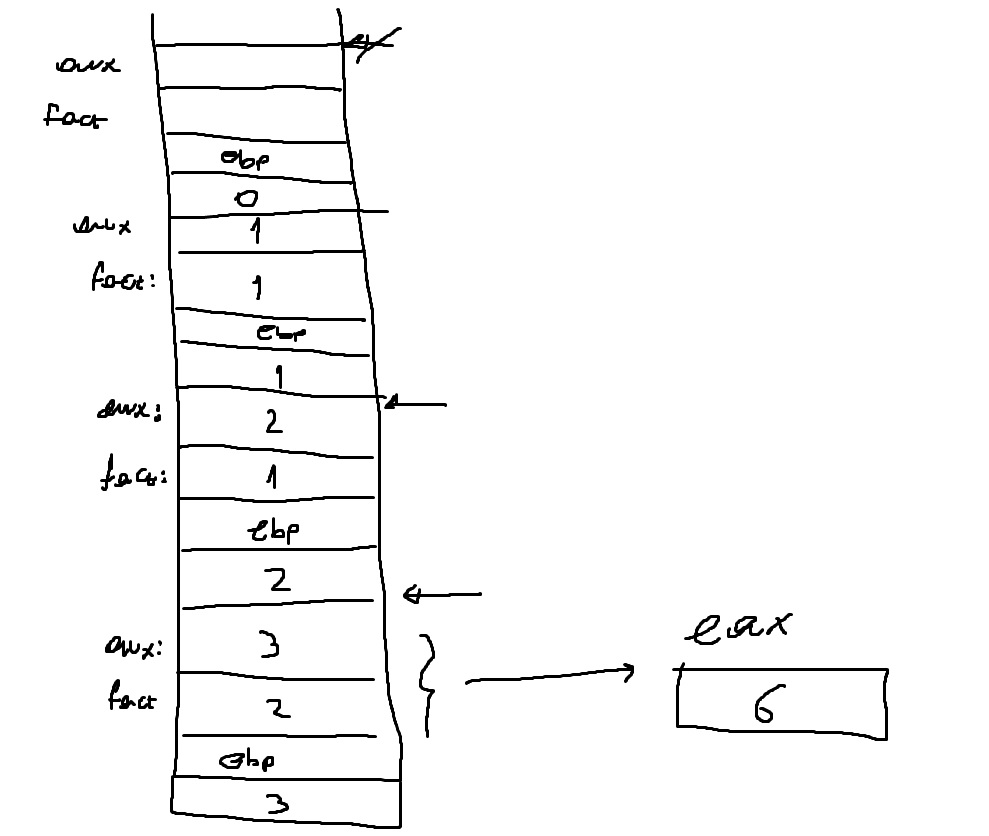 aux
fact
ebp
0
aux
1
fact:
1
ebp
1
aux:
2
fact:
1
ebp
2
aux:
3
fact
2
ebp
3
eax
6